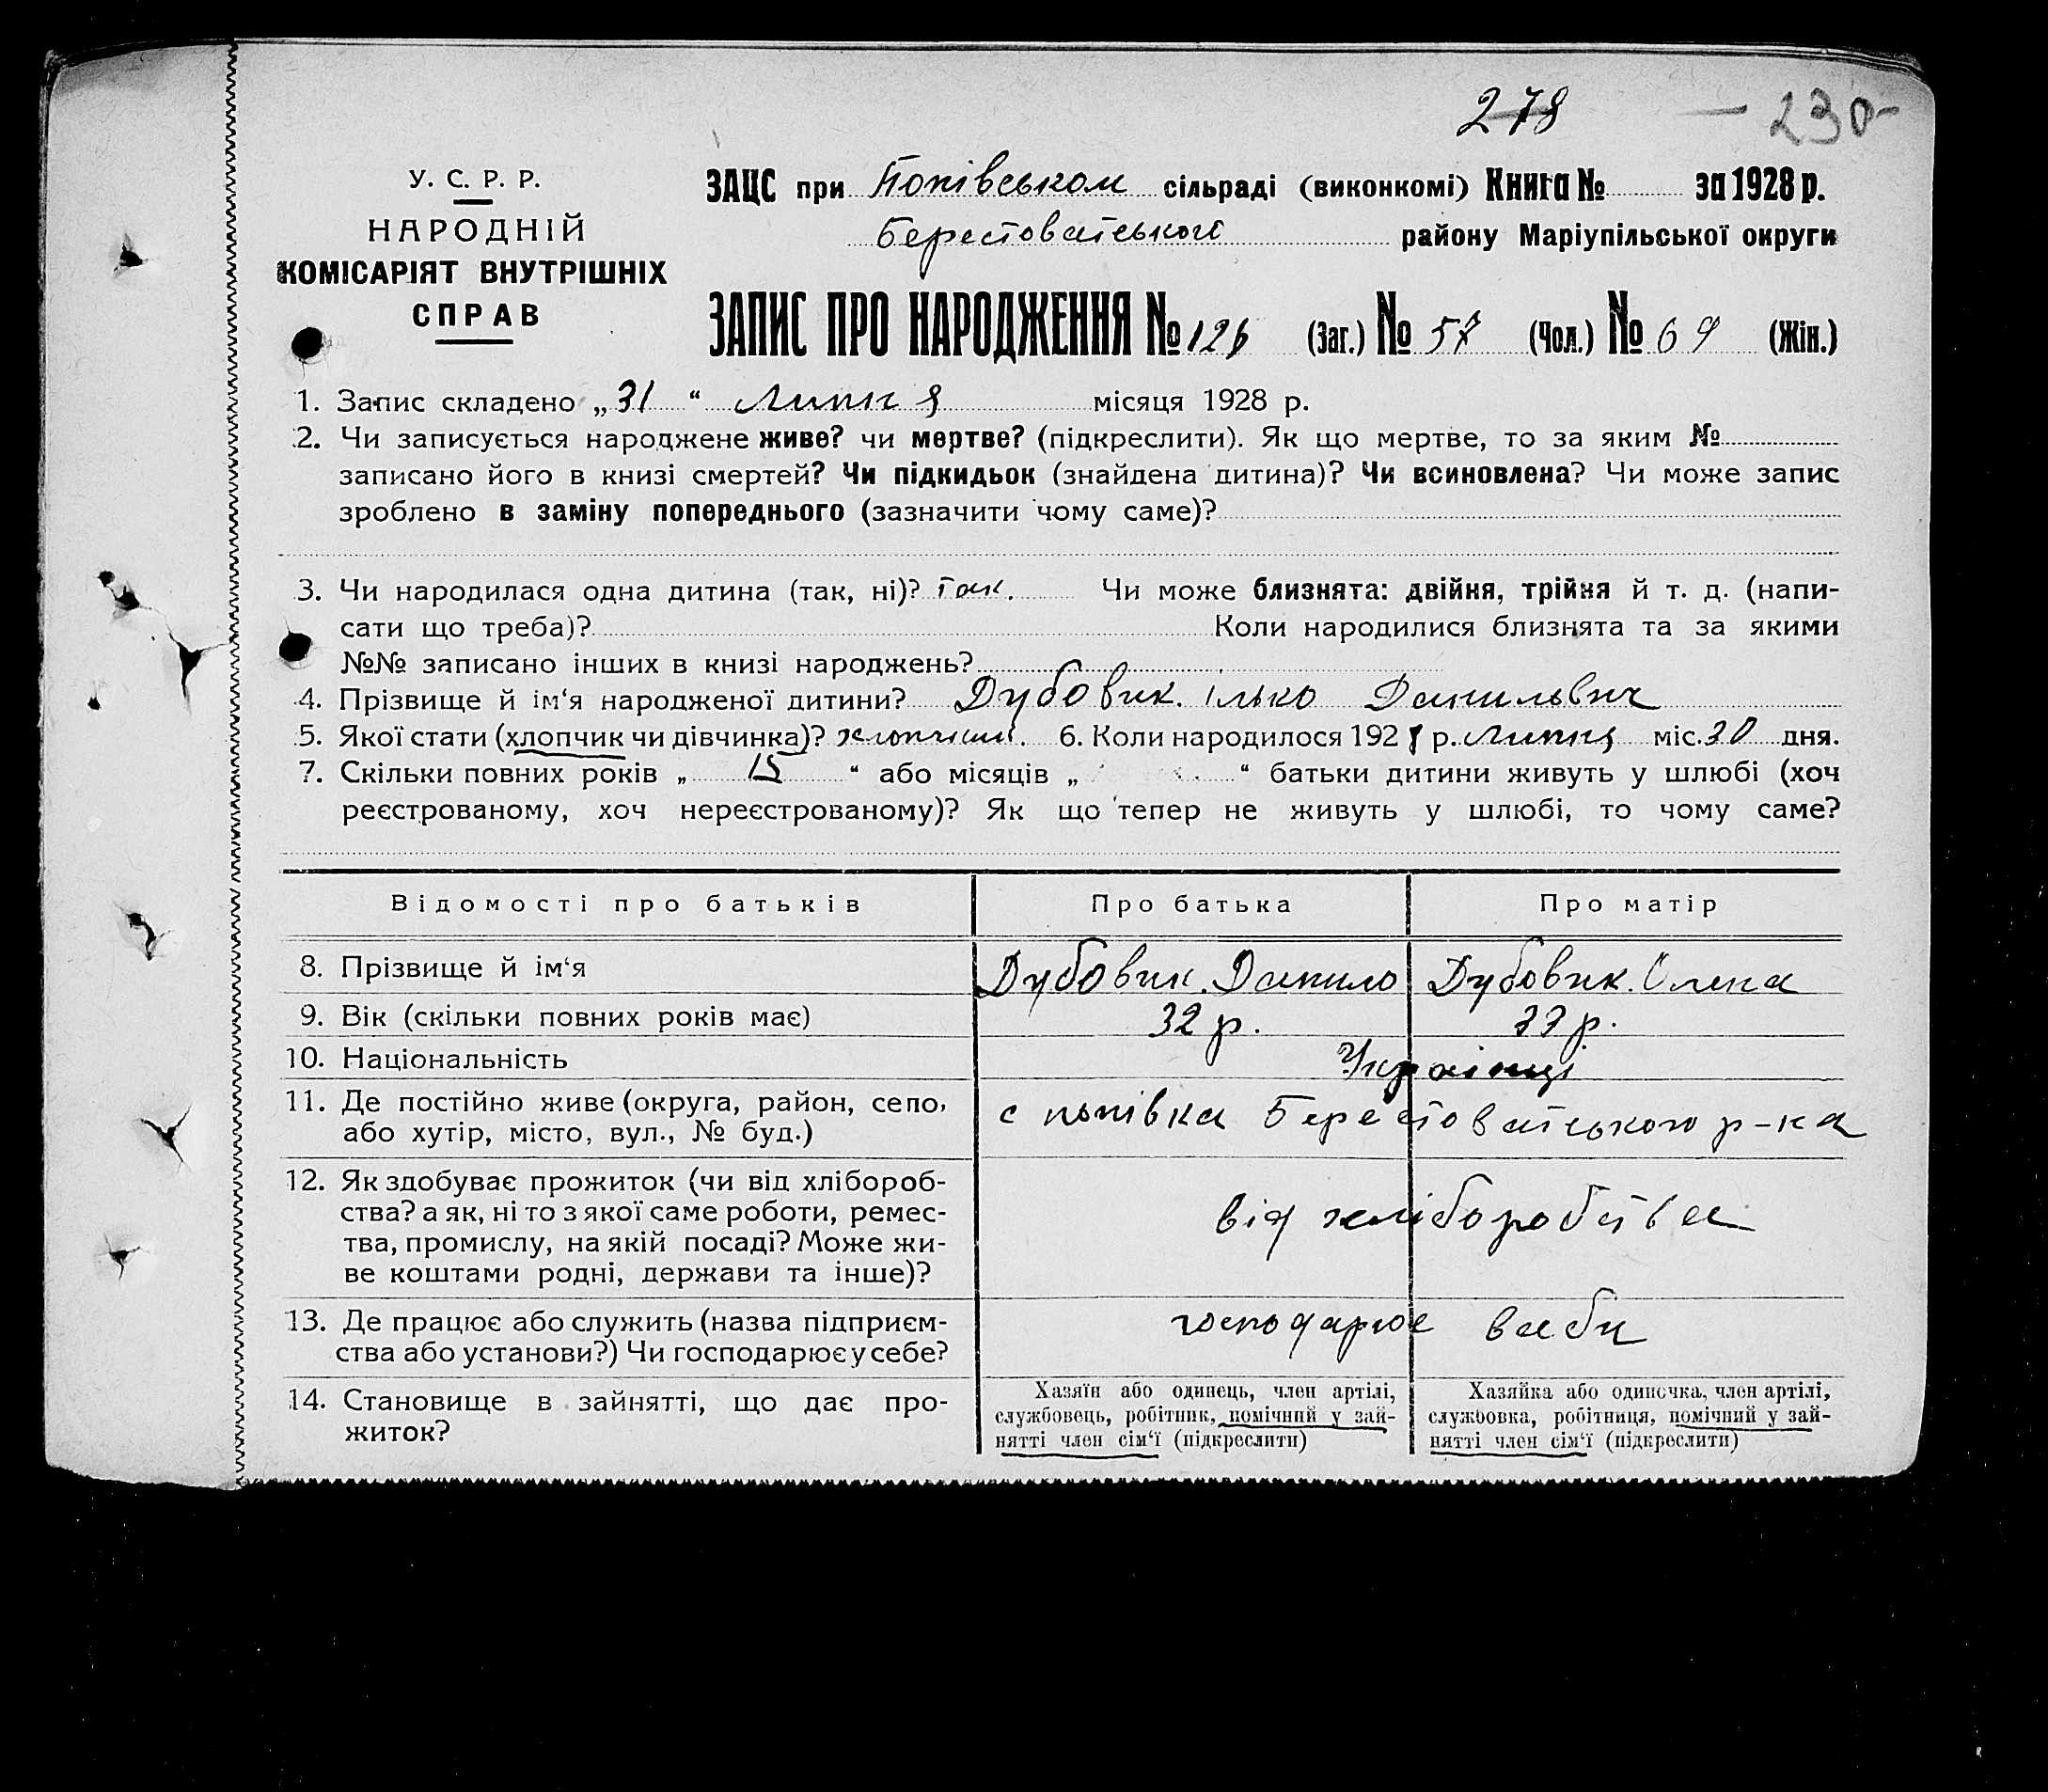 278 — 230-
У. С. Р. Р.
НАРОДНІЙ
КОМІСАРІЯТ ВНУТРІШНІХ
СПРАВ
ЗАЦС при Попівськом сільраді (виконкомі) Книга № за 1928 р.
Берестоватського району Маріупільської округи
ЗАПИС ПРО НАРОДЖЕННЯ № 126 (Заг.) № 57 (Чол.) № 69 (Жін.)
1. Запис складено „31“ Липня місяця 1928 р.
2. Чи записується народжене живе? чи мертве? (підкреслити). Як що мертве, то за яким №
записано його в книзі смертей? Чи підкидьок (знайдена дитина)? Чи всиновлена? Чи може запис
зроблено в заміну попереднього (зазначити чому саме)?
3. Чи народилася одна дитина (так, ні)? так. Чи може близнята: двійня, трійня й т. д. (напи-
сати що треба)? Коли народилися близнята та за якими
№№ записано інших в книзі народжень?
4. Прізвище й ім‘я народженої дитини? Дубовик. Ілько Данильвич
5. Якої стати (хлопчик чи дівчинка)? хлопчик. 6. Коли народилося 1928 р. Липня міс. 30 дня.
7. Скільки повних років „ 15 “ або місяців „ “ батьки дитини живуть у шлюбі (хоч
реєстрованому, хоч нереєстрованому)? Як що тепер не живуть у шлюбі, то чому саме?
Відомості про батьків Про батька Про матір
8. Прізвище й ім‘я Дубовик. Данило Дубовик. Олена
9. Вік (скільки повних років має) 32 р. 33 р.
10. Національність Українці
11. Де постійно живе (округа, район, село,
або хутір, місто, вул., № буд.) с попівка Берестоватського р-на
12. Як здобуває прожиток (чи від хлібороб-
ства? а як, ні то з якої саме роботи, ремес-
тва, промислу, на якій посаді? Може жи-
ве коштами родні, держави та інше)? від хліборобства
13. Де працює або служить (назва підприєм-
ства або установи?) Чи господарює у себе? господарює всеби
14. Становище в зайнятті, що дає про-
житок?
Хазяїн або одинець, член артілі,
службовець, робітник, помічний у зай-
нятті член сім‘ї (підкреслити)
Хазяйка або одиночка, член артілі,
службовка, робітниця, помічний у зай-
нятті член сім‘ї (підкреслити)